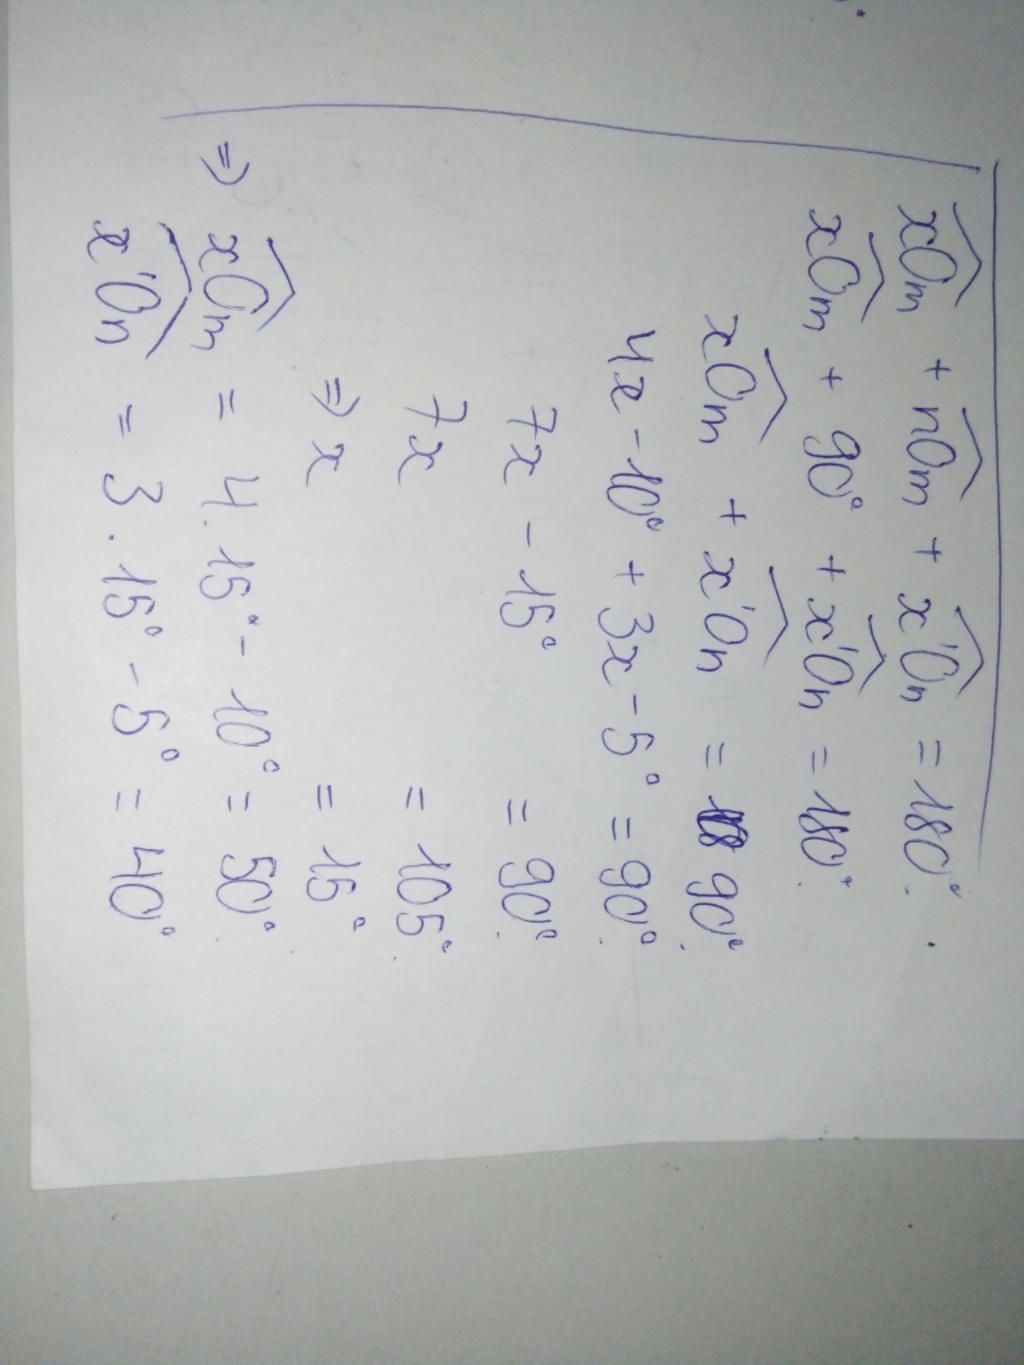 xOm + nOm + x'On = 180°.
xOm + 90° + x'On = 180°.
xOm + x'On = 90°.
4x - 10° + 3x - 5° = 90°.
7x - 15° = 90°.
7x = 105°.
⇒ x = 15°
⇒ xOm = 4.15° - 10° = 50°.
x'On = 3.15° - 5° = 40°.